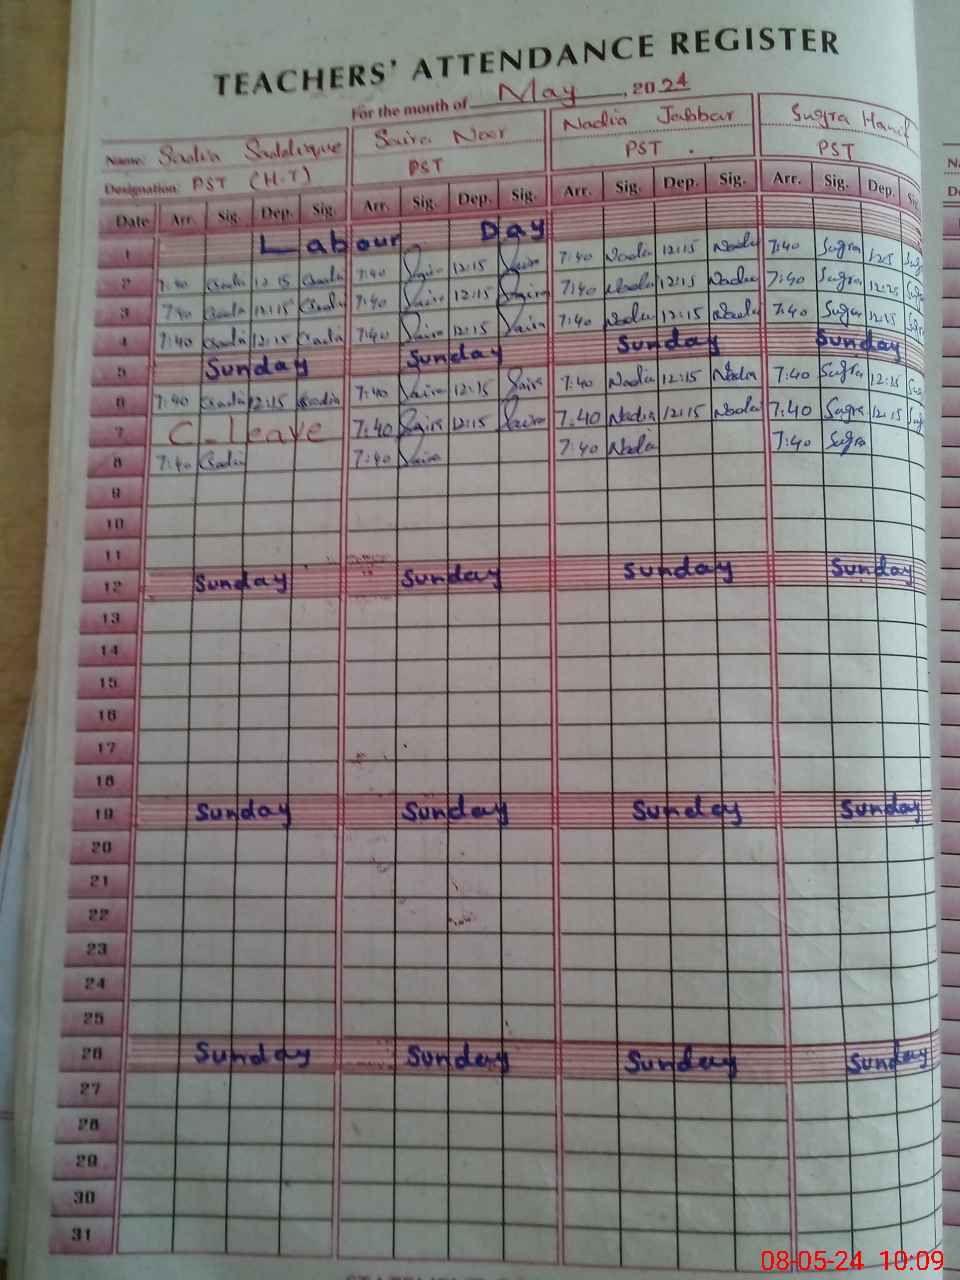 TEACHERS' ATTENDANCE REGISTER
For the month of May, 2024
Name: Sadia Saddique Saira Noor Nadia Jabbar Sugra Hanif
Designation: PST (H.T) PST PST . PST
Date Arr. Sig. Dep. Sig. Arr. Sig. Dep. Sig. Arr. Sig. Dep. Sig. Arr. Sig. Dep. Sig.
1 Labour Day
2 7:40 Sadia 12:15 Sadia 7:40 Saira 12:15 Saira 7:40 Nadia 12:15 Nadia 7:40 Sugra 12:15
3 7:40 Sadia 12:15 Sadia 7:40 Saira 12:15 Saira 7:40 Nadia 12:15 Nadia 7:40 Sugra 12:15
4 7:40 Sadia 12:15 Sadia 7:40 Saira 12:15 Saira 7:40 Nadia 12:15 Nadia 7:40 Sugra 12:15
5 Sunday Sunday Sunday Sunday
6 7:40 Sadia 12:15 Sadia 7:40 Saira 12:15 Saira 7:40 Nadia 12:15 Nadia 7:40 Sugra 12:15
7 C-leave 7:40 Saira 12:15 Saira 7:40 Nadia 12:15 Nadia 7:40 Sugra 12:15
8 7:40 Sadia 7:40 Saira 7:40 Nadia 7:40 Sugra
9
10
11
12 Sunday Sunday Sunday Sunday
13
14
15
16
17
18
19 Sunday Sunday Sunday Sunday
20
21
22
23
24
25
26 Sunday Sunday Sunday Sunday
27
28
29
30
31
08-05-24 10:09